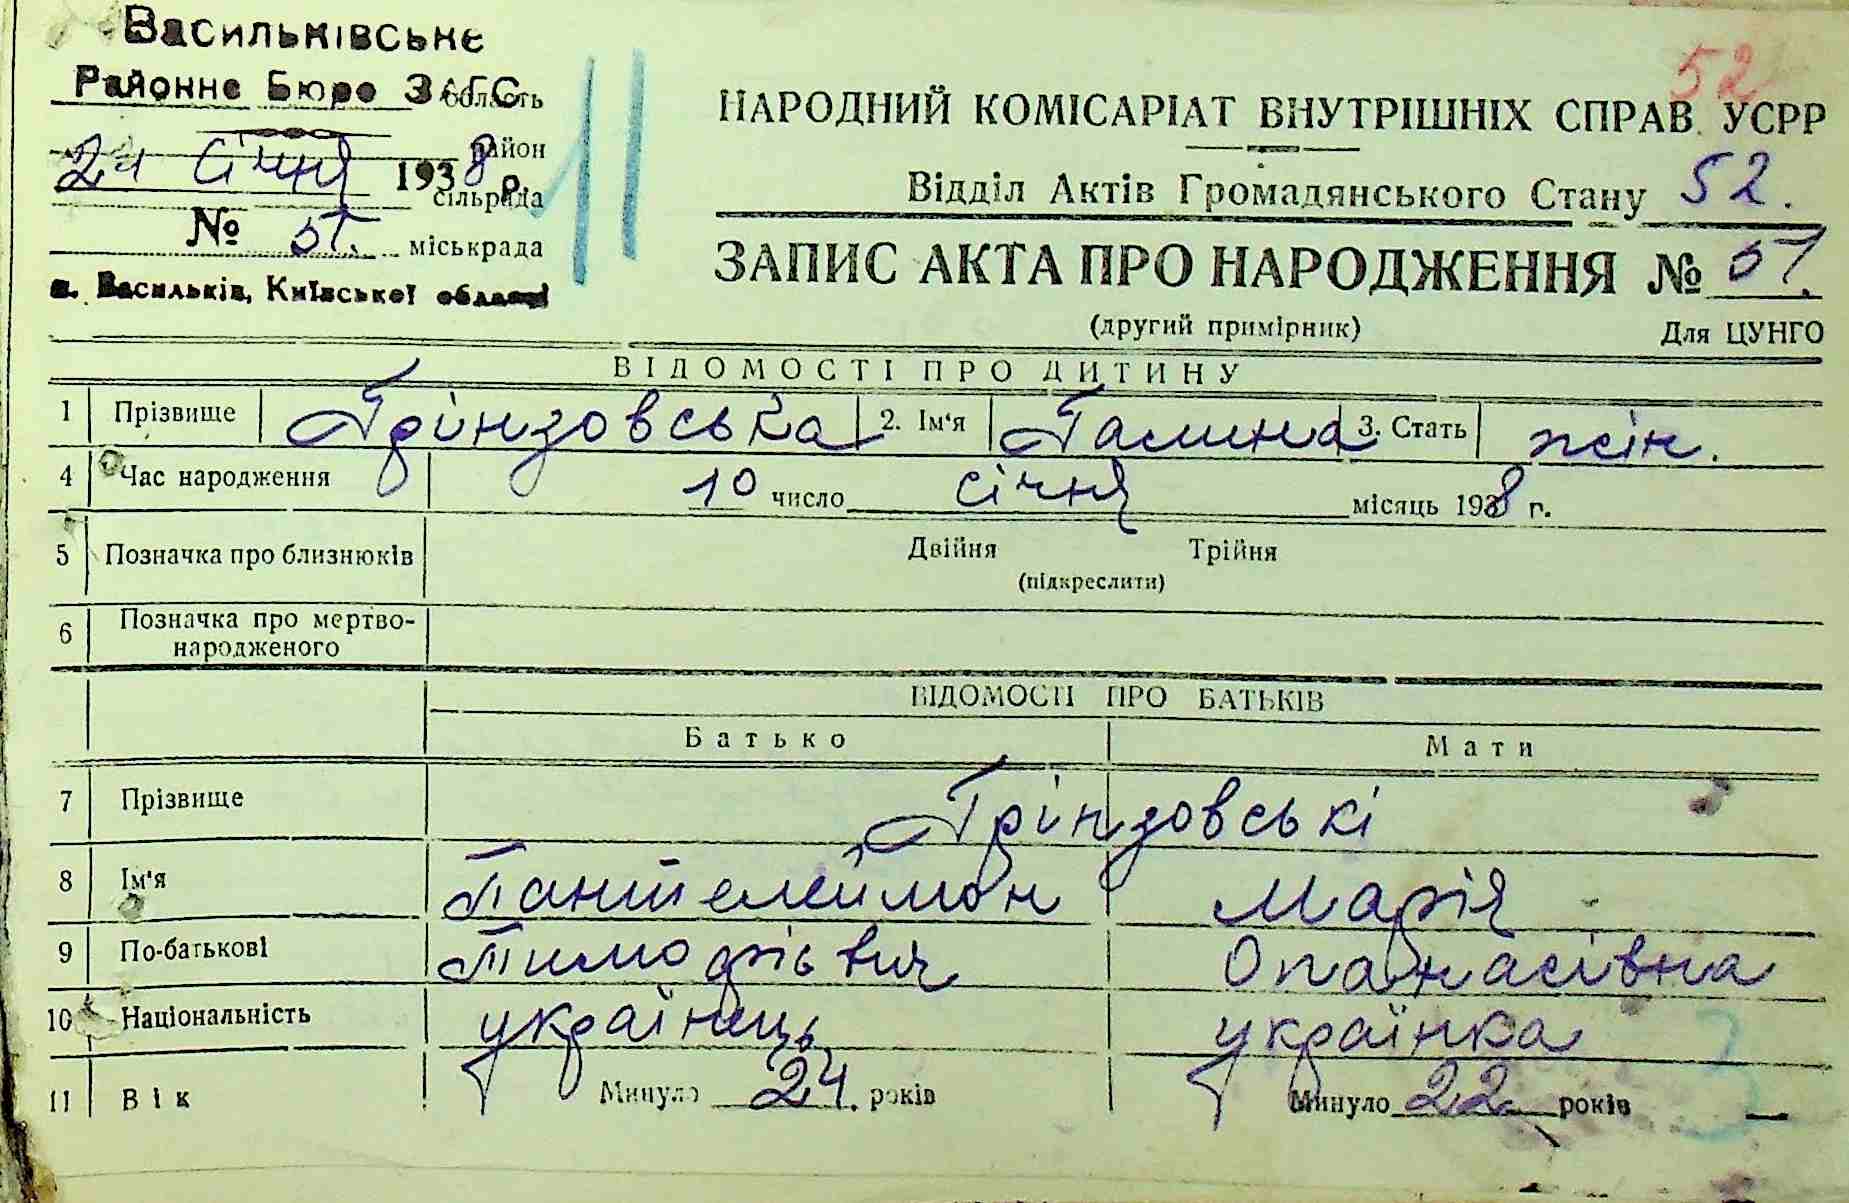 Васильківське
Районне Бюро ЗАГС область
район
21 січня 1938 р.
сільрада
№ 51. міськрада
м. Васильків, Київської області
52
НАРОДНИЙ КОМІСАРІАТ ВНУТРІШНІХ СПРАВ УСРР
Відділ Актів Громадянського Стану 52.
ЗАПИС АКТА ПРО НАРОДЖЕННЯ № 51.
(другий примірник) Для ЦУНГО
ВІДОМОСТІ ПРО ДИТИНУ
1 Прізвище Грінзовська 2. Ім'я Галина 3. Стать жін.
4 Час народження 10 число січня місяць 1938 г.
5 Позначка про близнюків Двійня Трійня
(підкреслити)
6 Позначка про мертво-
народженого
ВІДОМОСТІ ПРО БАТЬКІВ
Батько Мати
7 Прізвище Грінзовські
8 Ім'я Пантелеймон Марія
9 По-батькові Тимофієвич Опанасівна
10 Національність українець українка
11 Вік Минуло 24. років Минуло 22 років